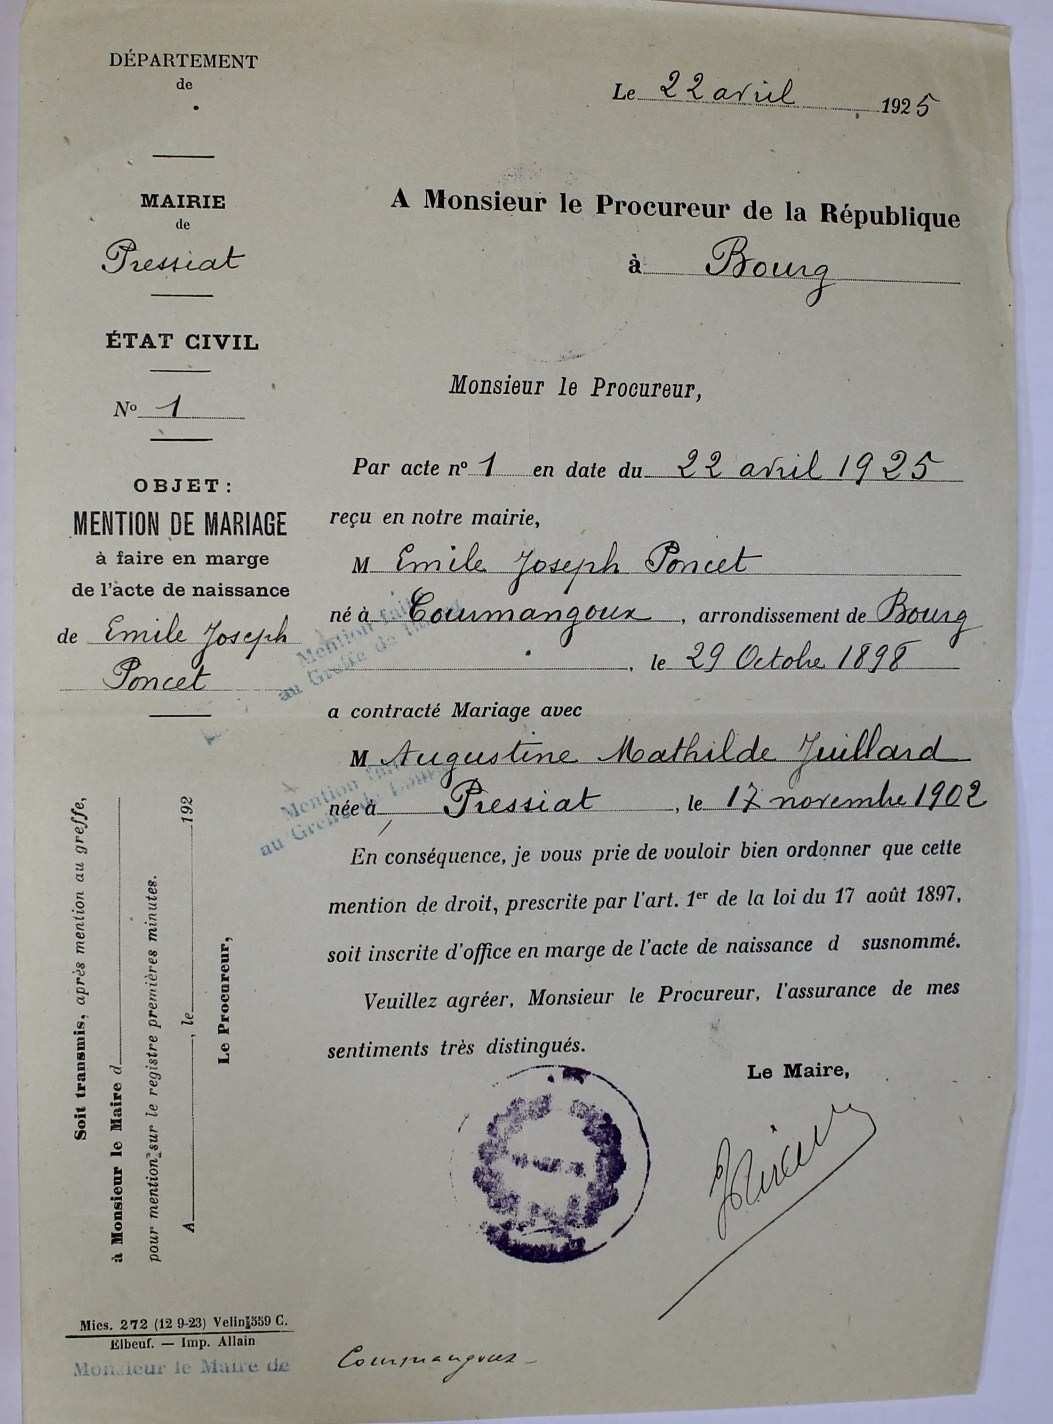 DÉPARTEMENT
de
MAIRIE
de
Pressiat
ÉTAT CIVIL
No 1
OBJET :
MENTION DE MARIAGE
à faire en marge
de l'acte de naissance
de Emile Joseph
Poncet
Soit transmis, après mention au greffe,
à Monsieur le Maire d
pour mention sur le registre premières minutes.
A , le 192
Le Procureur,
Mies. 272 (12 9-23) Velin 559 C.
Elbeuf. — Imp. Allain
Monsieur le Maire de Courmangoux
Le 22 avril 1925
A Monsieur le Procureur de la République
à Bourg
Monsieur le Procureur,
Par acte no 1 en date du 22 avril 1925
reçu en notre mairie,
M Emile Joseph Poncet
né à Courmangoux, arrondissement de Bourg
, le 29 Octobre 1898
Mention fait
au Greffe de
a contracté Mariage avec
M Augustine Mathilde Juillard
née à Pressiat, le 17 novembre 1902
Mention fai
au Greffe
En conséquence, je vous prie de vouloir bien ordonner que cette
mention de droit, prescrite par l'art. 1er de la loi du 17 août 1897,
soit inscrite d'office en marge de l'acte de naissance d susnommé.
Veuillez agréer, Monsieur le Procureur, l'assurance de mes
sentiments très distingués.
Le Maire,